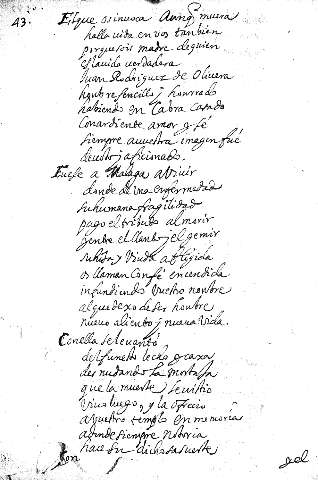 43. El que os invoca Aunq muera
halla vida en vos tambien
porque sois madre de quien
es la vida verdadera
Juan Rodriguez de Olivera
hombre sencillo y honrrado
habiendo en Cabra Casado
Con ardiente amor y fé
siempre a vuestra imagen fué
devoto y aficionado.
Fuese a Malaga a Vivir
donde de una enfermedad
su humana fragilidad
pago el tributo al morir
y entre el llanto y el gemir
su hija y Viuda afligida
os llaman Con fé encendida
infundiendo Vuestro nombre
al que dexo de ser hombre
nuevo aliento y nueva Vida.
Con ella se levantó
del funesto lecho o caxa
desnudando la mortaja
que la muerte le vistio
Vino luego, y la ofrecio
a Vuestro templo en memoria
siempre notoria
hace su dichosa suerte